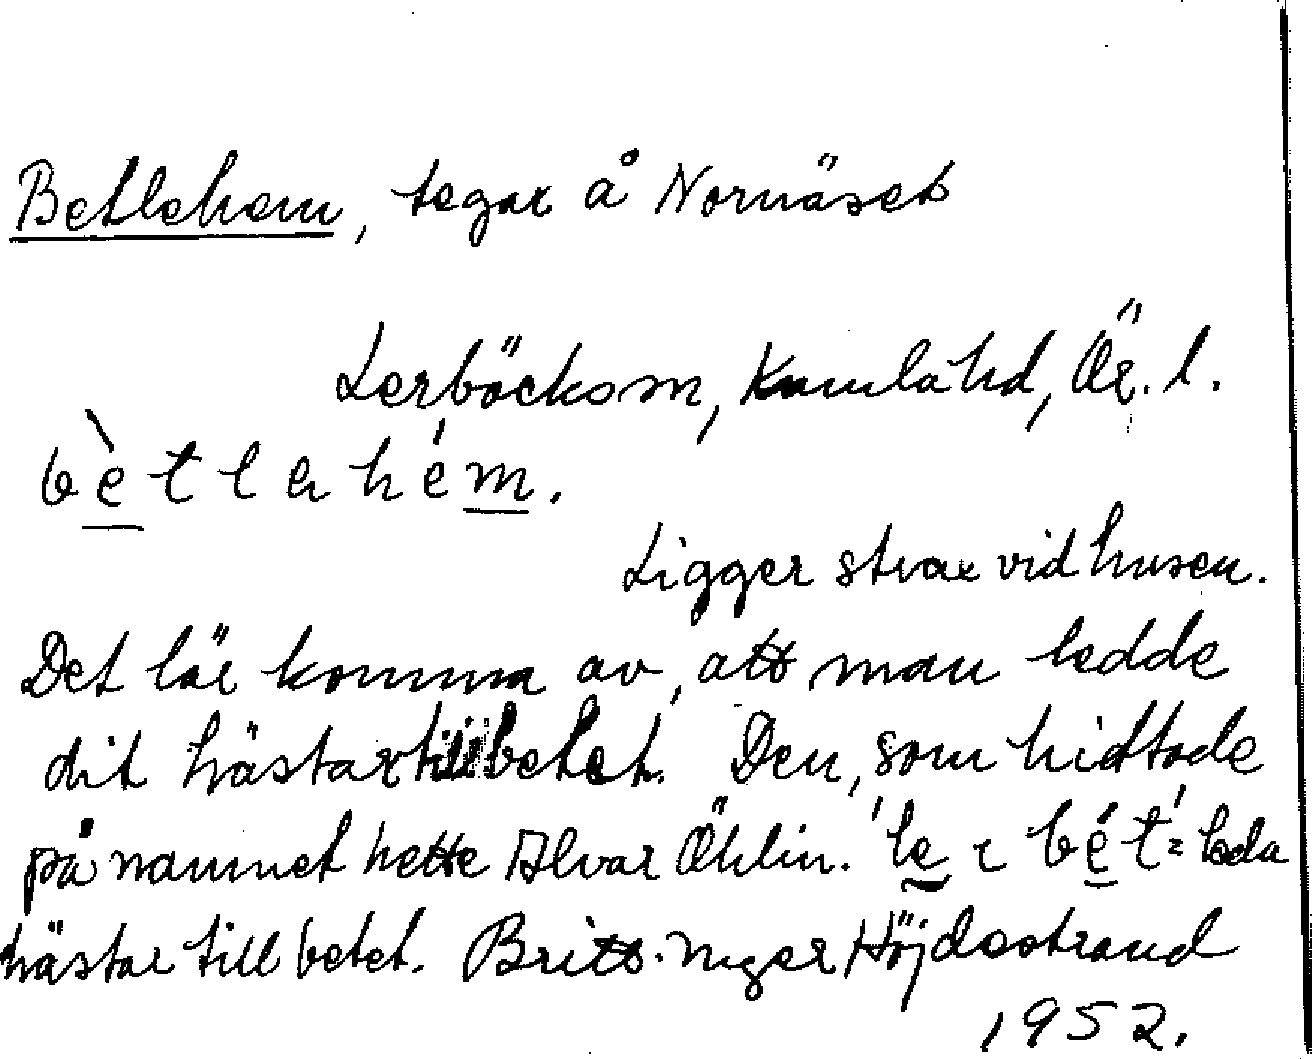 Betlehem, tegar å Nornäset
Lerbäcks sn, Kumla hd, Ör. l.
bètlehém.
Ligger strax vid husen.
Det lär komma av, att man ledde
dit hästar till betet. Den, som hittade
på namnet hette Alvar Öhlin. 'le i bét' = leda
hästar till betet. Britt. Höjdestrand
1952.